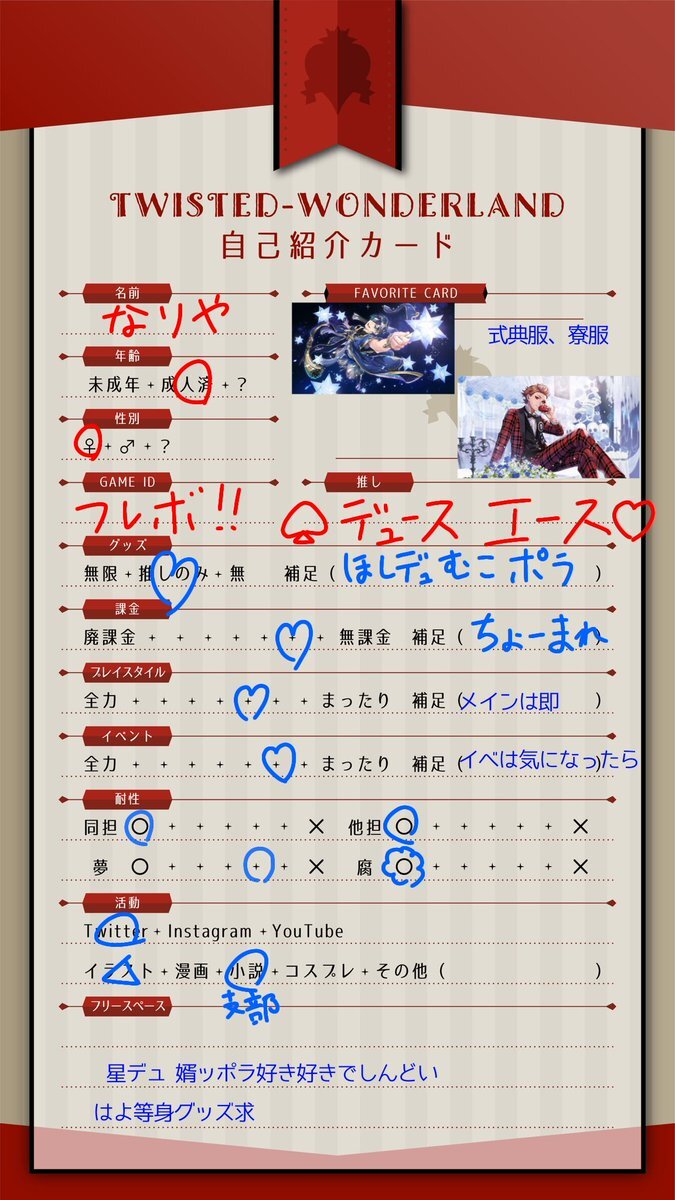 TWISTED-WONDERLAND
自己紹介カード
名前
なりや
FAVORITE CARD
式典服、寮服
年齢
未成年 + 成人済 + ?
性別
♀ + ♂ + ?
GAME ID
フレボ!!
推し
♤デュース エース♡
グッズ
無限 + 推しのみ + 無 補足 ( ほしデュむこポラ )
課金
廃課金 + + + + + + + 無課金 補足 ( ちょーまれ )
プレイスタイル
全力 + + + + + + + まったり 補足 (メインは即 )
イベント
全力 + + + + + + + まったり 補足 (イベは気になったら)
耐性
同担 ○ + + + + + × 他担 ○ + + + + + ×
夢 ○ + + + + + × 腐 ○ + + + + + ×
活動
Twitter + Instagram + YouTube
イラスト + 漫画 + 小説 + コスプレ + その他 ( )
支部
フリースペース
星デュ 婿ッポラ好き好きでしんどい
はよ等身グッズ求